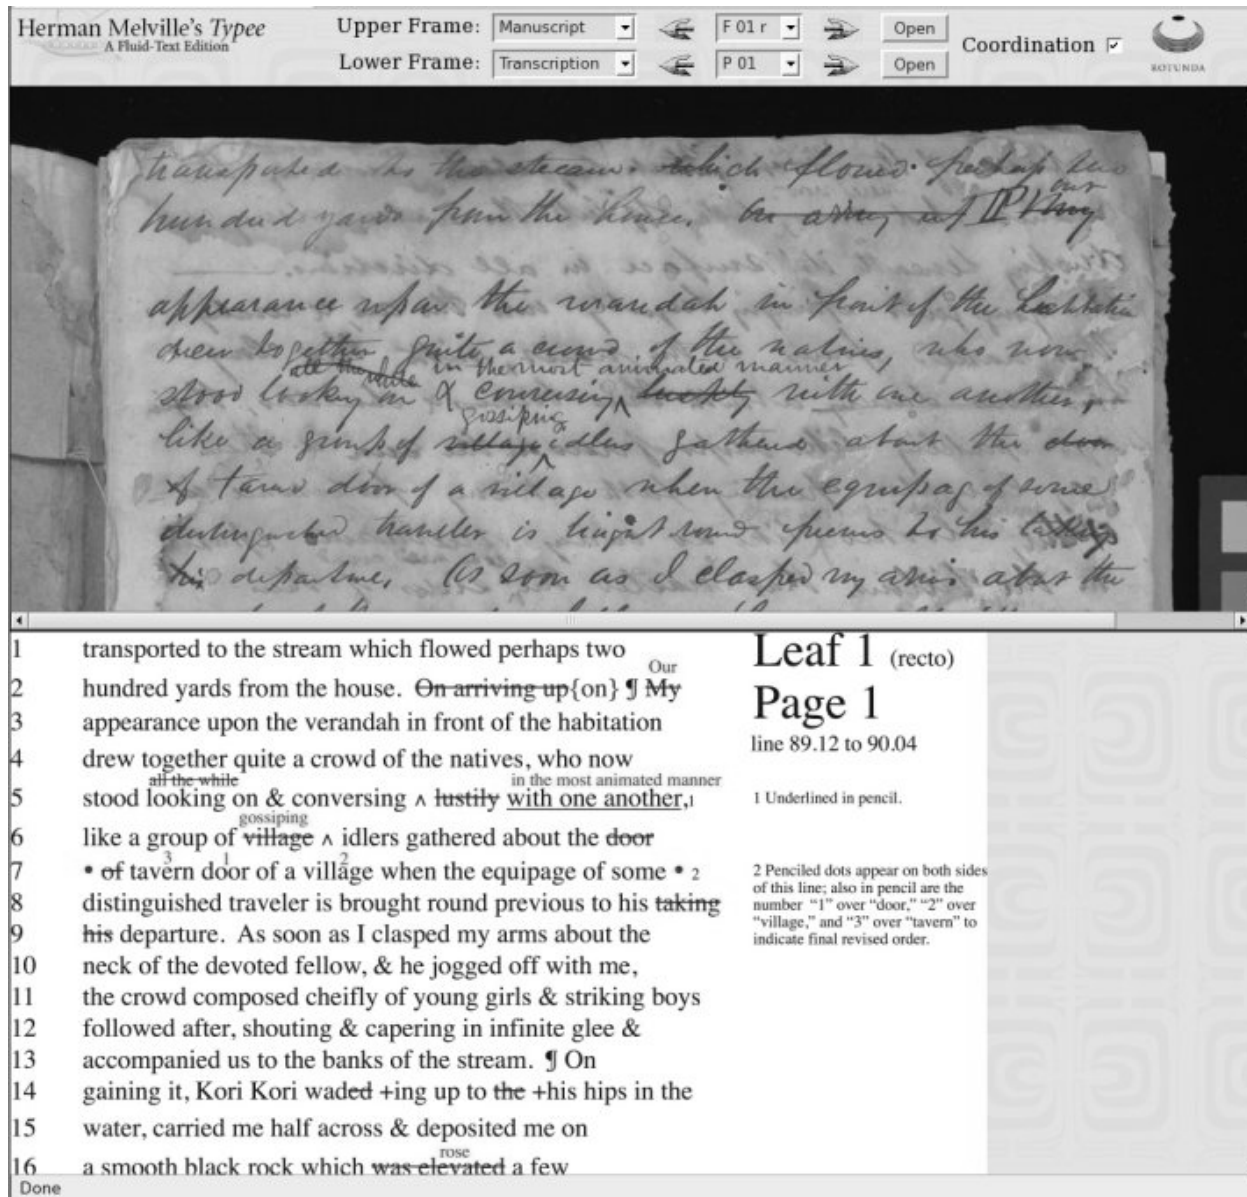 Herman Melville's Typee
A Fluid-Text Edition
Upper Frame: Manuscript F 01 r Open
Lower Frame: Transcription P 01 Open
Coordination
ROTUNDA
transported to the stream which flowed perhaps two
our
hundred yards from the house. On arriving up ¶ My
appearance upon the verandah in front of the habitation
drew together quite a crowd of the natives, who now
all the while in the most animated manner
stood looking on & conversing ^ lustily with one another,
gossiping
like a group of village ^ idlers gathered about the door
of tavern door of a village when the equipage of some
distinguished traveler is brought round previous to his taking
his departure. As soon as I clasped my arms about the
1 transported to the stream which flowed perhaps two
Our
2 hundred yards from the house. On arriving up{on} ¶ My
3 appearance upon the verandah in front of the habitation
4 drew together quite a crowd of the natives, who now
all the while in the most animated manner
5 stood looking on & conversing ^ lustily with one another,1
gossiping
6 like a group of village ^ idlers gathered about the door
3 1 2
7 • of tavern door of a village when the equipage of some • 2
8 distinguished traveler is brought round previous to his taking
9 his departure. As soon as I clasped my arms about the
10 neck of the devoted fellow, & he jogged off with me,
11 the crowd composed cheifly of young girls & striking boys
12 followed after, shouting & capering in infinite glee &
13 accompanied us to the banks of the stream. ¶ On
14 gaining it, Kori Kori waded +ing up to the +his hips in the
15 water, carried me half across & deposited me on
rose
16 a smooth black rock which was elevated a few
Leaf 1 (recto)
Page 1
line 89.12 to 90.04
1 Underlined in pencil.
2 Penciled dots appear on both sides
of this line; also in pencil are the
number “1” over “door,” “2” over
“village,” and “3” over “tavern” to
indicate final revised order.
Done